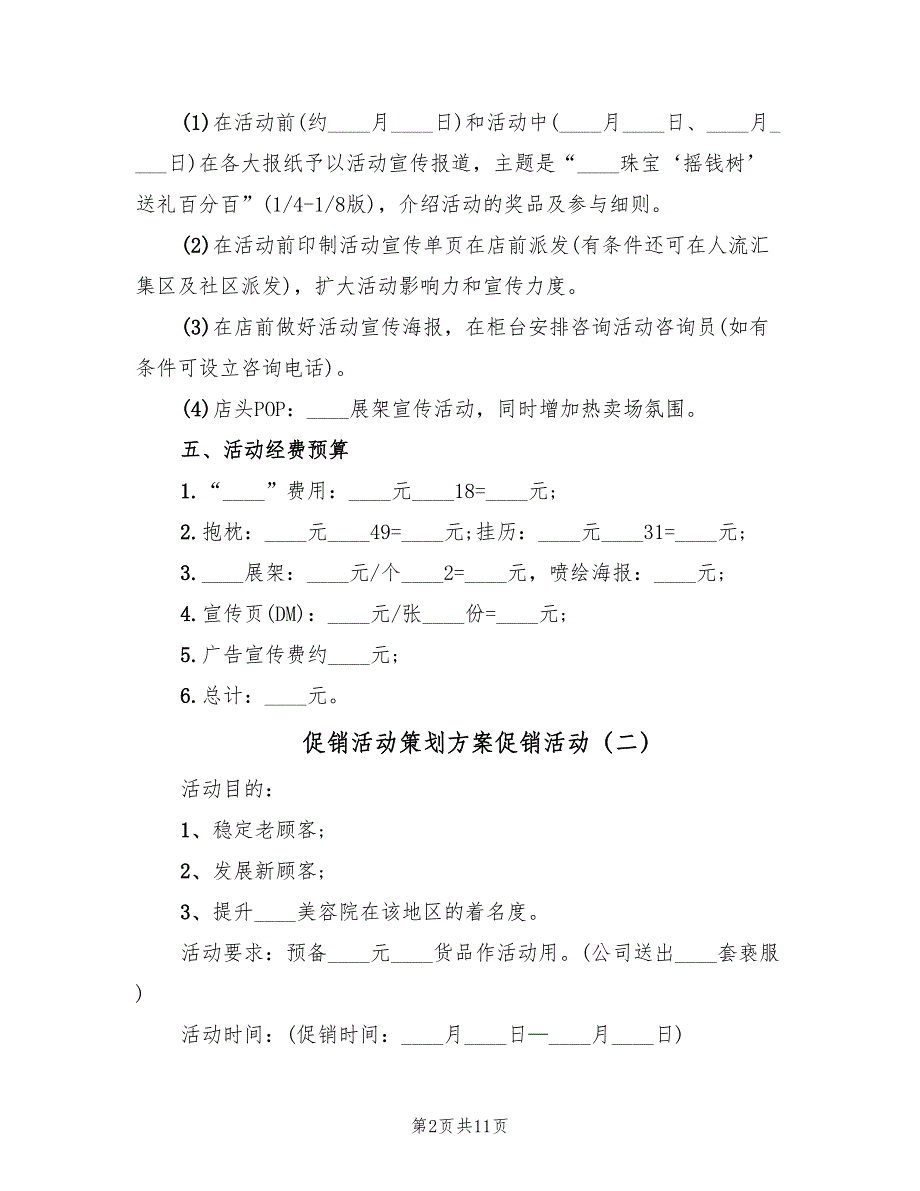 (1)在活动前(约____月____日)和活动中(____月____日、____月_
___日)在各大报纸予以活动宣传报道，主题是“____珠宝‘摇钱树’
送礼百分百”(1/4-1/8版)，介绍活动的奖品及参与细则。
(2)在活动前印制活动宣传单页在店前派发(有条件还可在人流汇
集区及社区派发)，扩大活动影响力和宣传力度。
(3)在店前做好活动宣传海报，在柜台安排咨询活动咨询员(如有
条件可设立咨询电话)。
(4)店头POP：____展架宣传活动，同时增加热卖场氛围。
五、活动经费预算
1.“____”费用：____元____18=____元;
2.抱枕：____元____49=____元;挂历：____元____31=____元;
3.____展架：____元/个____2=____元，喷绘海报：____元;
4.宣传页(DM)：____元/张____份=____元;
5.广告宣传费约____元;
6.总计：____元。
促销活动策划方案促销活动（二）
活动目的：
1、稳定老顾客;
2、发展新顾客;
3、提升____美容院在该地区的着名度。
活动要求：预备____元____货品作活动用。(公司送出____套亵服
)
活动时间：(促销时间：____月____日—____月____日)
第2页共11页